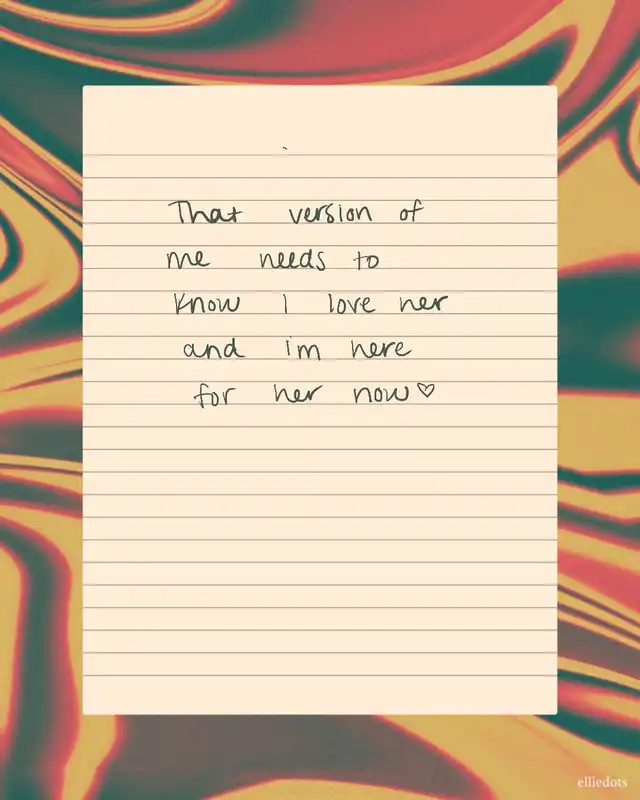 That version of
me needs to
know I love her
and i'm here
for her now♡
elliedots